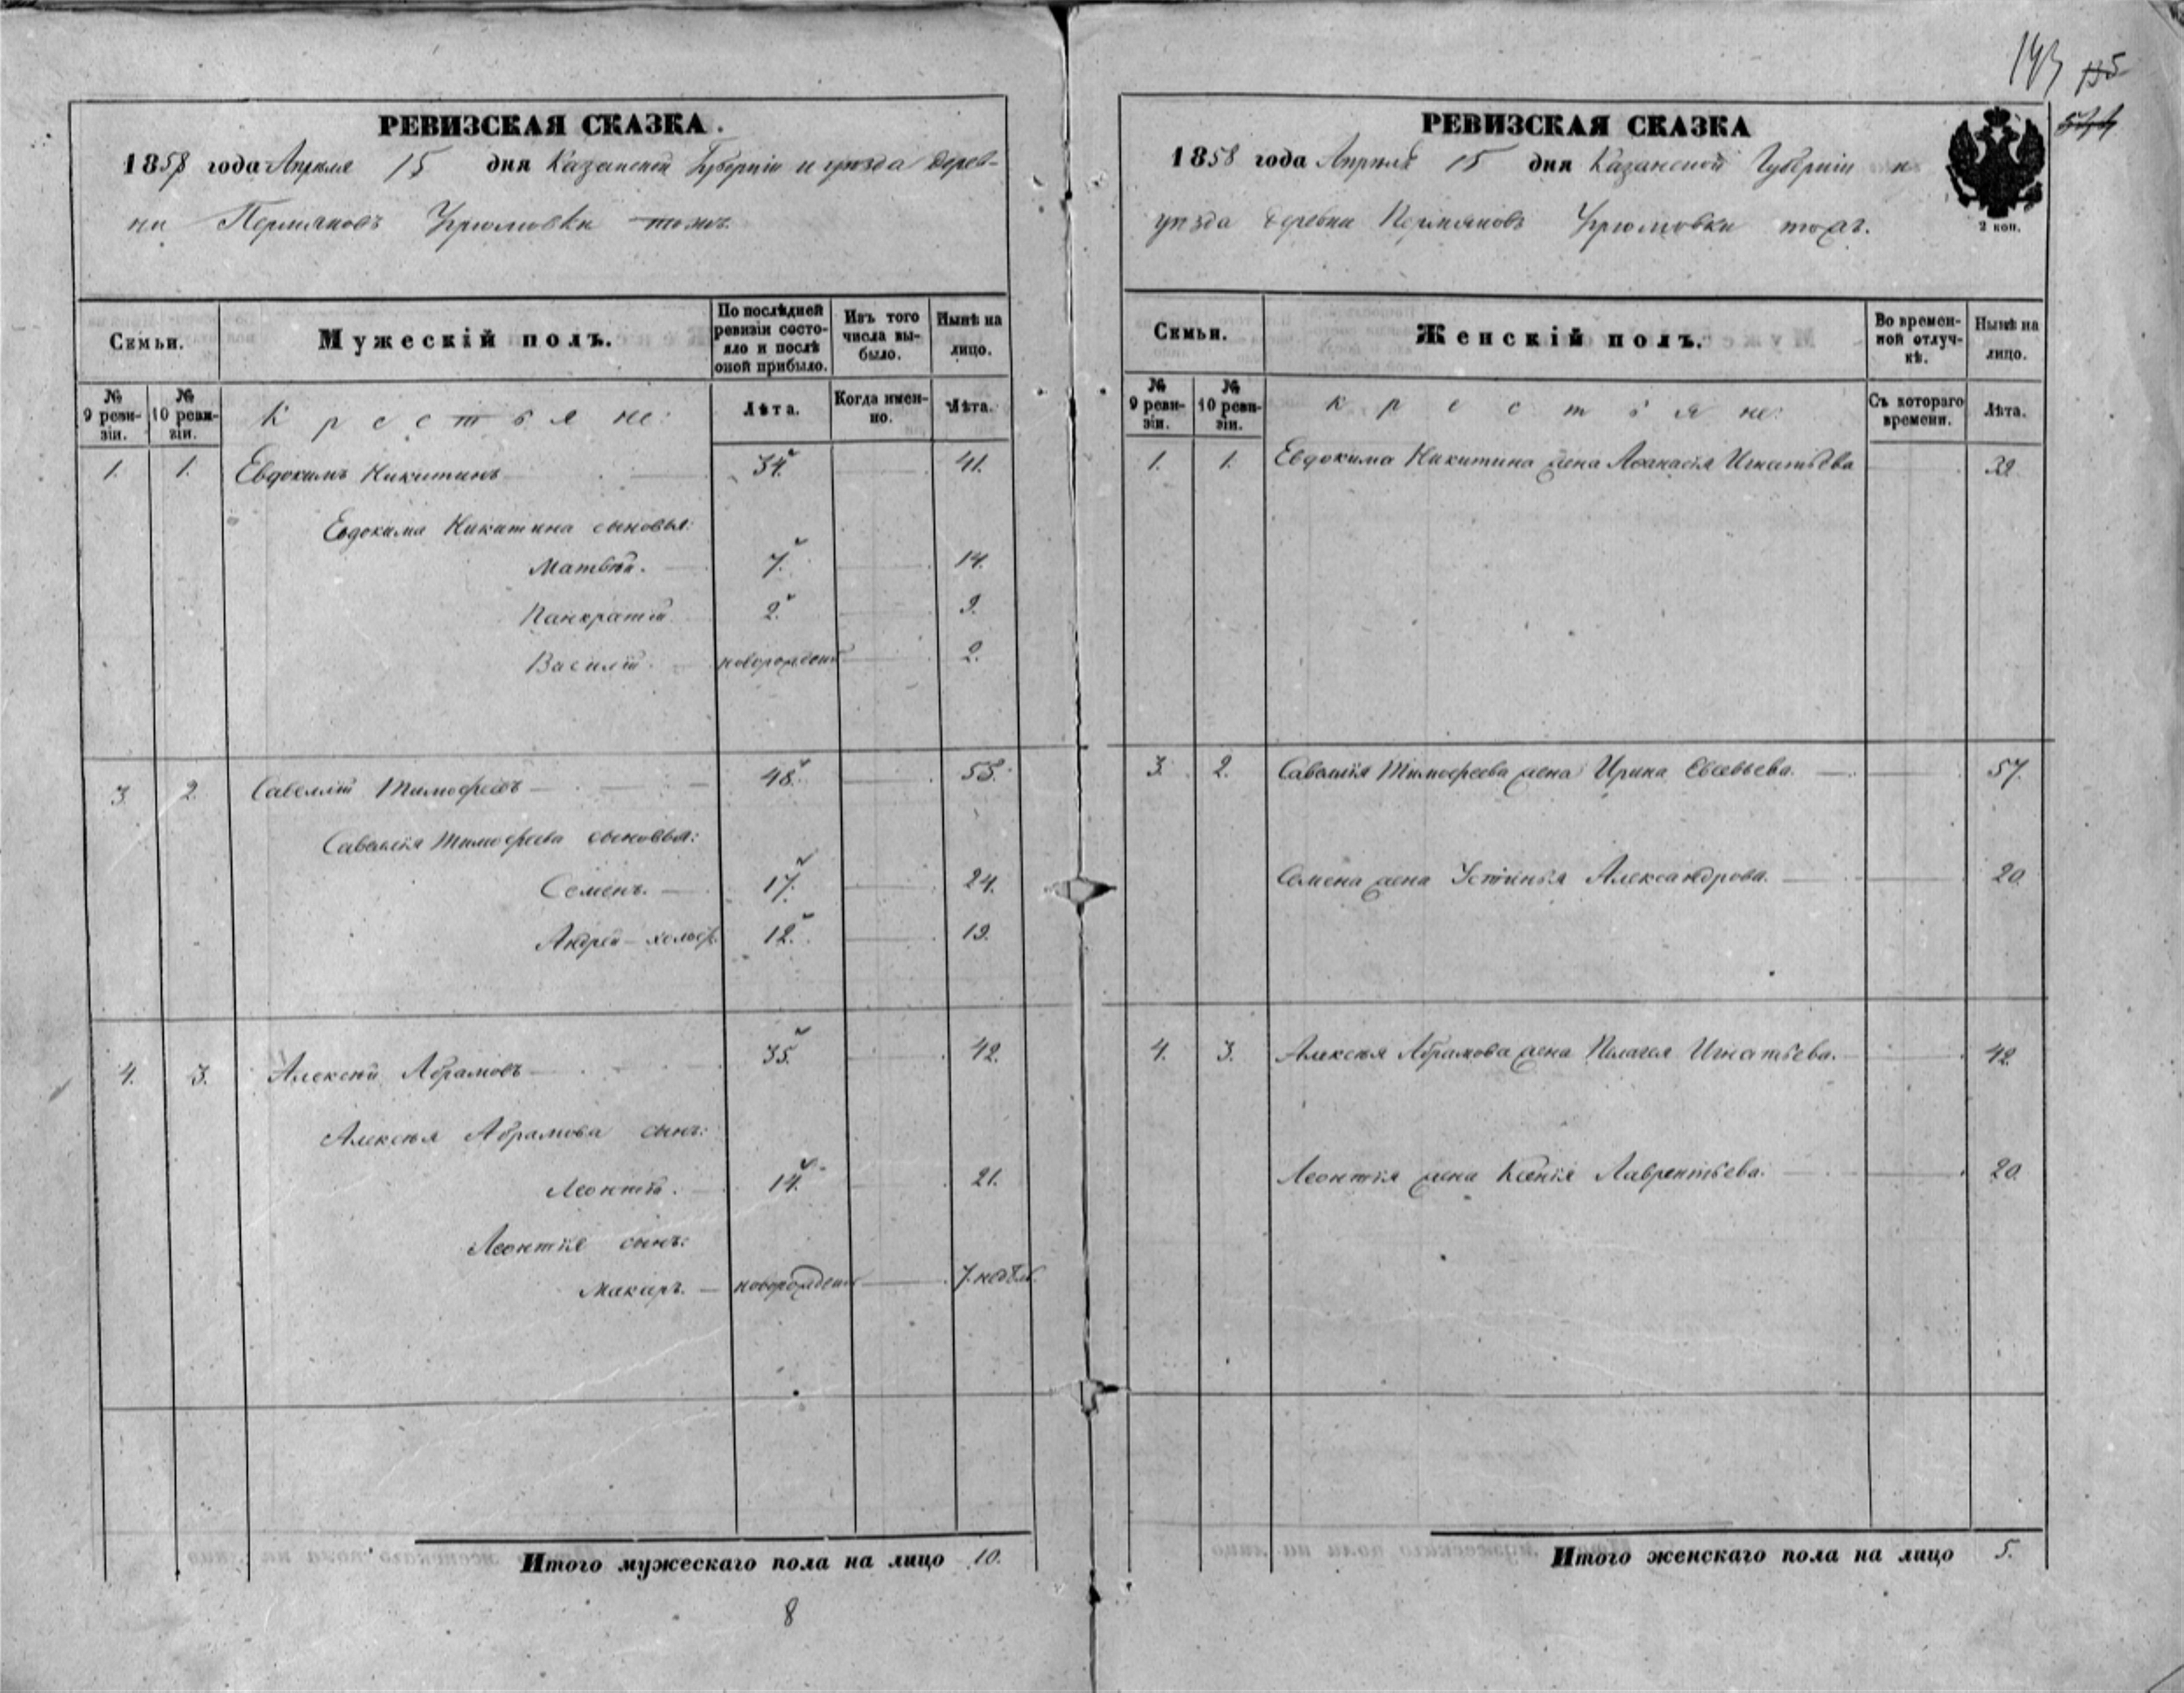 143 135
РЕВИЗСКАЯ СКАЗКА.
1858 года Апреля 15 дня Казанской Губерніи и уѣзда дерев-
ни Пермяковъ Угрюмовка тожъ.
Семьи.
Мужескій полъ.
По послѣдней ревизіи состояло и послѣ оной прибыло.
Изъ того числа выбыло.
Нынѣ на лицо.
№ 9 ревизіи.
№ 10 ревизіи.
Крестьяне:
Лѣта.
Когда именно.
Лѣта.
1. 1. Евдокимъ Никитинъ 34. 41.
Евдокима Никитина сыновья:
Матвѣй. 7. 14.
Панкратій 2. 9.
Василій. новорожденъ 2.
3. 2. Савелій Тимофеевъ 48. 55.
Савелія Тимофеева сыновья:
Семенъ. 17. 24.
Андрей 12. 19.
4. 3. Алексѣй Абрамовъ 35. 42.
Алексѣя Абрамова сынъ:
Леонтій. 14. 21.
Леонтія сынъ:
Макаръ. новорожденъ 7. недѣль.
Итого мужескаго пола на лицо 10.
8
РЕВИЗСКАЯ СКАЗКА
1858 года Апреля 15 дня Казанской Губерніи и
уѣзда деревни Пермяковъ Угрюмовка тожъ.
2 коп.
Семьи.
Женскій полъ.
Во временной отлучкѣ.
Нынѣ на лицо.
№ 9 ревизіи.
№ 10 ревизіи.
Крестьяне:
Съ котораго времени.
Лѣта.
1. 1. Евдокима Никитина жена Афанасія Игнатьева 39.
3. 2. Савелія Тимофеева жена Ирина Евсевьева. 57.
Семена жена Устинья Александрова. 20.
4. 3. Алексѣя Абрамова жена Пелагея Игнатьева. 42.
Леонтія жена Ксенія Лаврентьева. 20.
Итого женскаго пола на лицо 5.